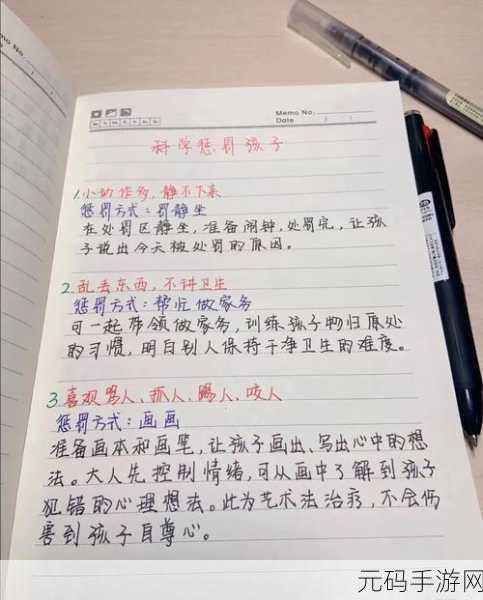 Memo No.
Date
科学惩罚孩子
1.小动作多,静不下来
惩罚方式:罚静坐
在处罚区静坐,准备闹钟,处罚完,让孩
子说出今天被处罚的原因。
2.乱丢东西,不讲卫生
惩罚方式:帮忙做家务
可一起带领做家务,训练孩子物归原处
的习惯,明白别人保持干净卫生的难度。
3.喜欢骂人、抓人、踢人、咬人
惩罚方式:画画
准备画本和画笔,让孩子画出、写出心中的想
法。大人先控制情绪,可从画中了解到孩子
犯错的心理想法。此为艺术法治疗,不会伤
害到孩子自尊心。
元码手游网